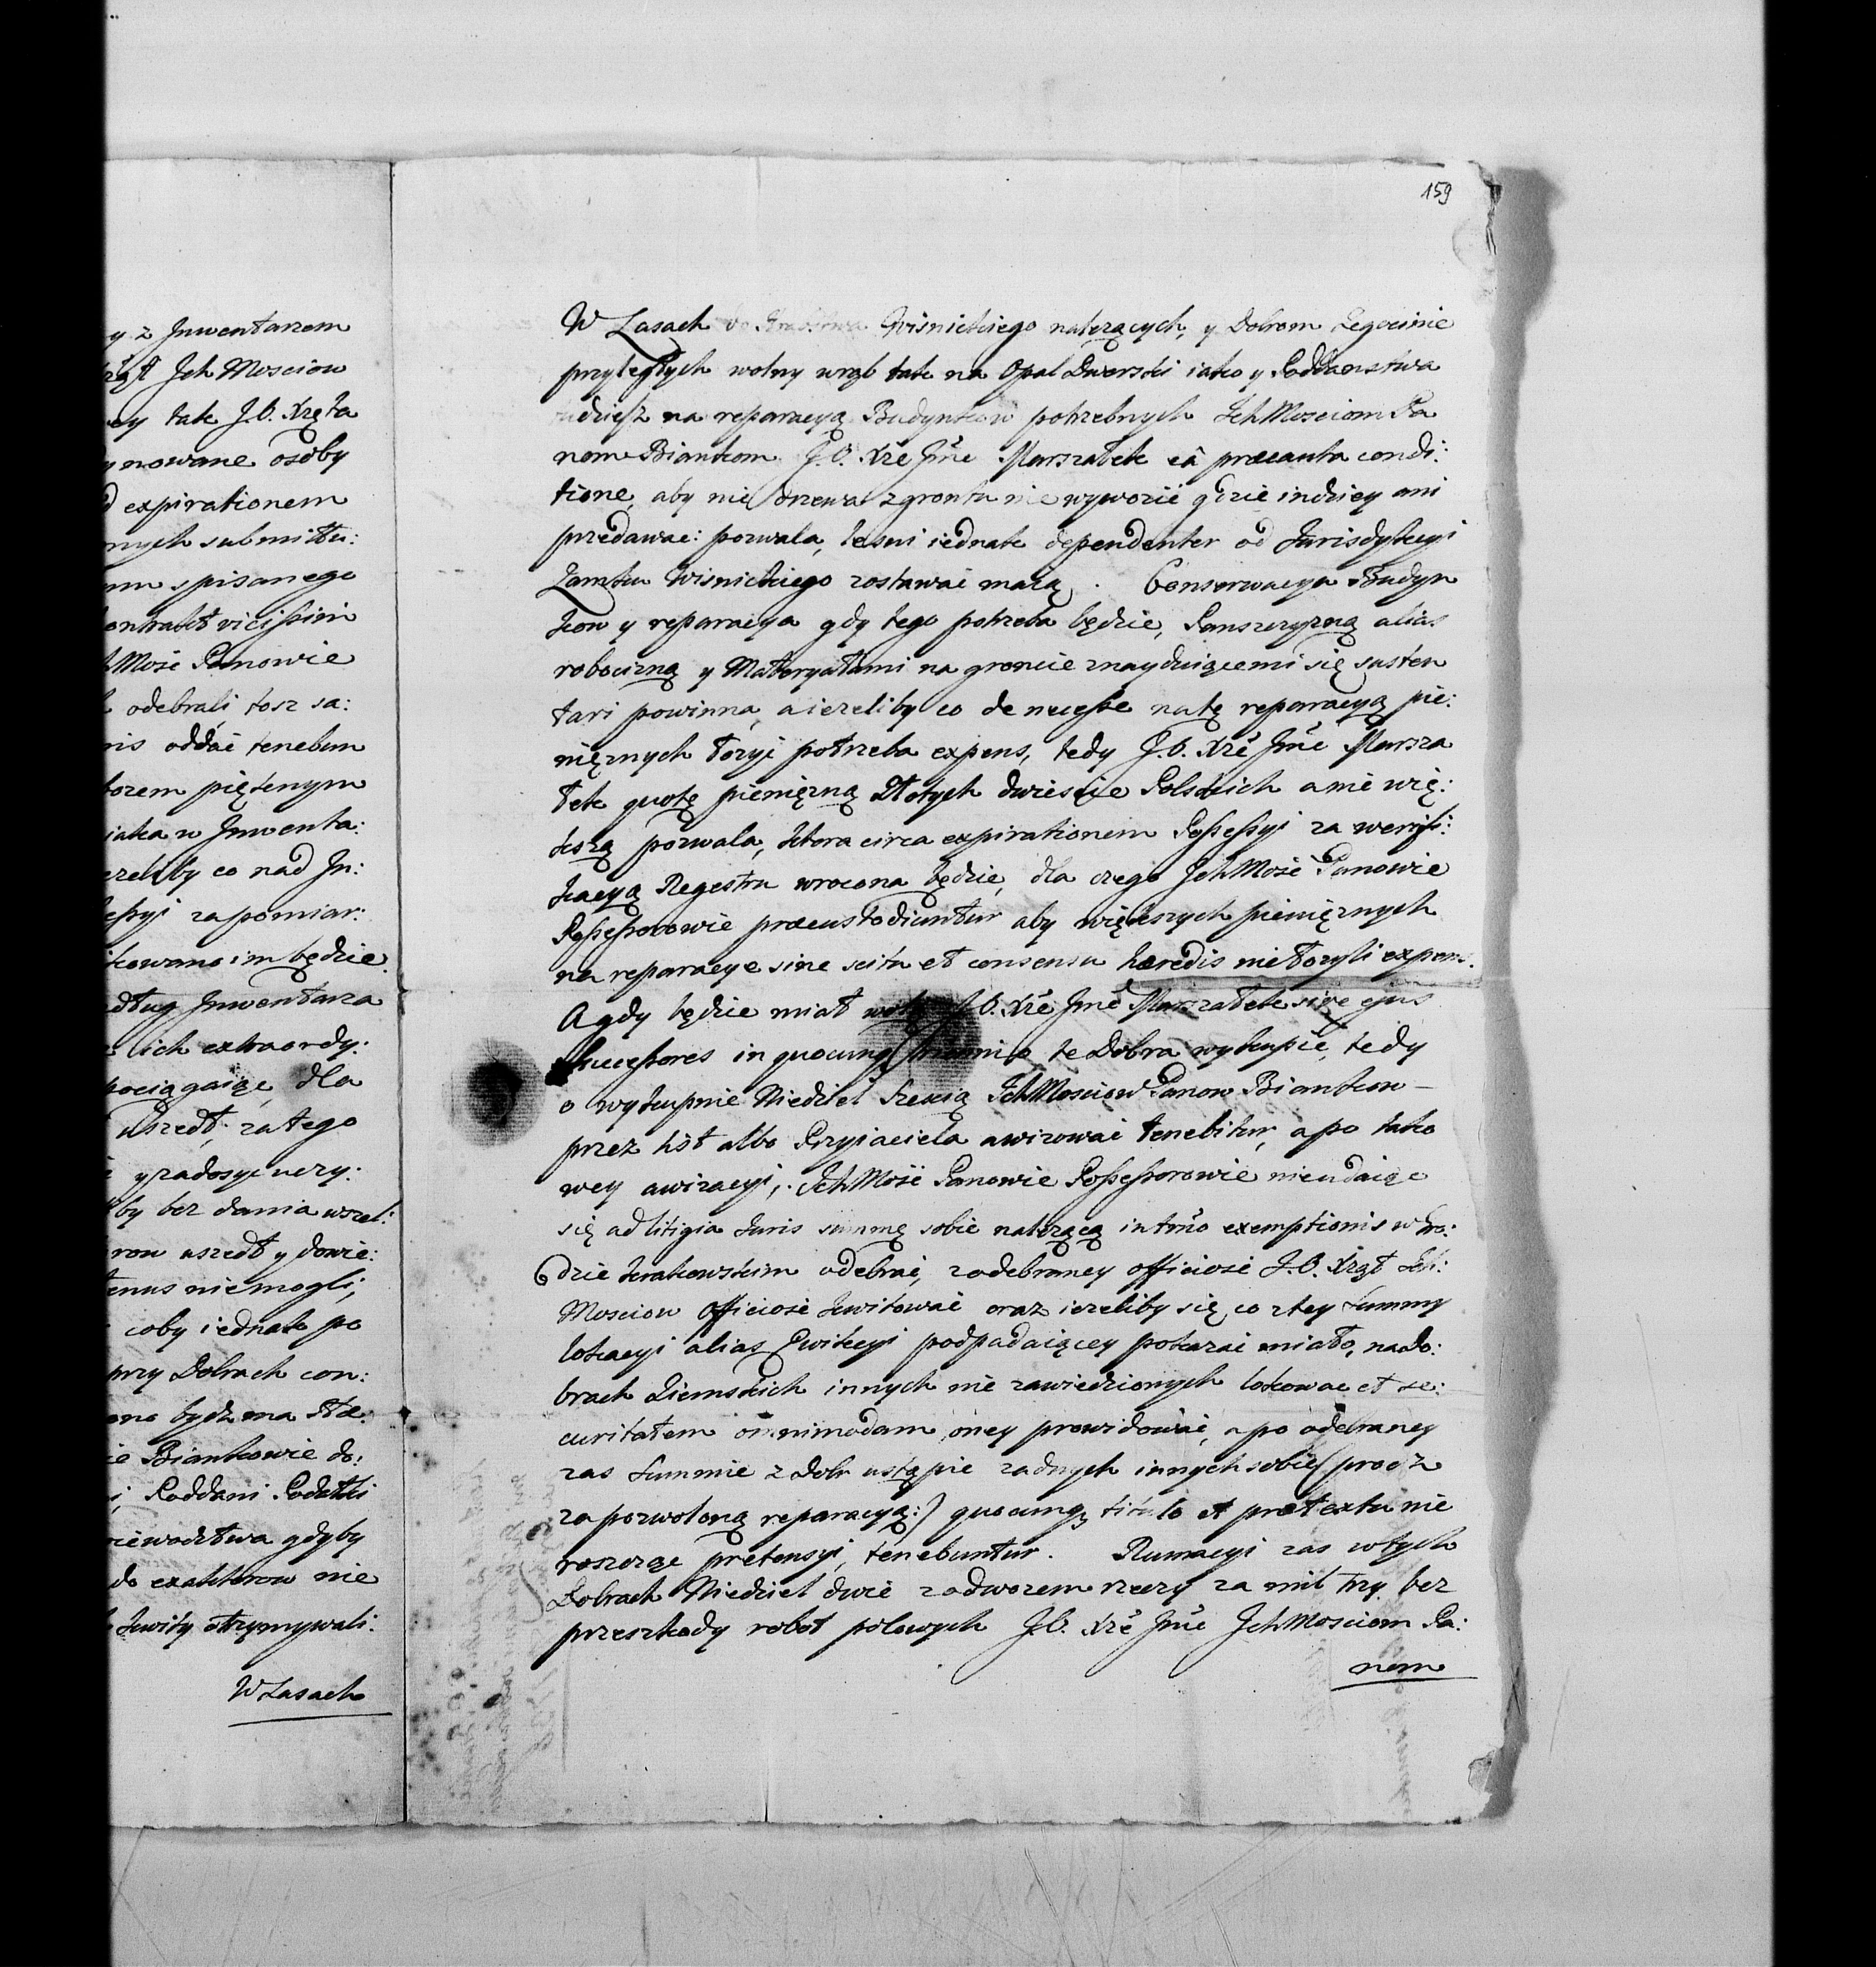 159
y z Inwentarzem
Jch Mosciow
tak J.O. Xręta
ynowane osoby
d expirationem
nych submittu:
spisanego
ontrakt vicissim
Mość Panowie
odebrali tosz sa:
ris oddać tenebun
borem piętenym
iaka w Inwenta:
ezeliby co nad In:
essyi zapomiar:
kowano im będzie.
edług Inwentarza
ich extraordy:
pociągaiąc, dla
uszedł, za tego
y zadosyc uczy:
by bez dania wszel:
row uszedł y dowie:
tenus niemogli,
coby iednak po
przy Dobrach con:
ono bydź ma
ie Biankowie do:
Poddani Podatki
iewodztwa gdyby
do exaktorow nie
kwity otrzymywali.
W Lasach
W Lasach do Hrabstwa Wisnickiego nalezących, y Dobrom Zegocinie
przyległych wolny wrąb tak na Opał Dworski iako y Poddaństwa
tudziesz na reparacyą Budynkow potrzebnych Ich Mosciom Pa
nom Biankom J.O. Xże Jmć Marszałek eâ præcauta condi:
tione, aby nie drzewa z grontu nie wywozić gdzie indziey ani
przedawac: pozwala, lesni iednak dependenter od Jurisdykcyi
Zamku Wisnickiego zostawać maią. Conserwacya Budyn
kow y reparacya gdy tego potrzeba będzie, Panszczyzną alias
robocizną y Materyałami na groncie znayduiącemi się susten
tari powinna, a iezeliby co de necesse na tę reparacyą pie:
nięznych łozyć potrzeba expens, tedy J.O. Xże Jmć Marsza
łek quotę pienięzną Złotych dwiescie Polskich a nie wię:
kszą pozwala, ktora circa expirationem Possessyi za weryfi:
kacyą Regestru wrocona będzie, dla czego Ich Mość Panowie
Possessorowie præcustodiuntur aby większych pienięznych
na reparacye sine scitu et consensu hæredis nie łozyli expens.
A gdy będzie miał wolą J.O. Xże Jmć Marszałek sive ejus
successores in quocunq triennio te Dobra wykupić, tedy
o wykupnie Niedziel Szescią Ich Mosciow Panow Biankow –
przez list albo Przyiaciela awizować tenebitur, a po tako
wey awizacyi, Ich Mość Panowie Possessorowie nieudaiąc
się ad litigia Juris summę sobie nalezącą in tmno exemptionis w Gro:
dzie Krakowskim odebrać, z odebraney officiose J.O. Xżąt Ich:
Mosciow officiose kwitować oraz iezeliby się co z tey Summy
lokacyi alias Ewikcyi podpadaiącey pokazać miało, na do:
brach Ziemskich innych nie zawiedzionych lokowac et se:
curitatem omnimodam oney prowidować, a po odebraney
zas Summie z Dobr ustąpic zadnych innych sobie (procz
za pozwoloną reparacyą:) quocunq titulo et prætextu nie
roszcząc pretensyi, tenebuntur. Rumacyi zas w tych
Dobrach Niedziel dwie z odwozem rzeczy za mil trzy bez
przeszkody robot polowych J.O. Xże Jmć Ich Mosciom Pa:
nom